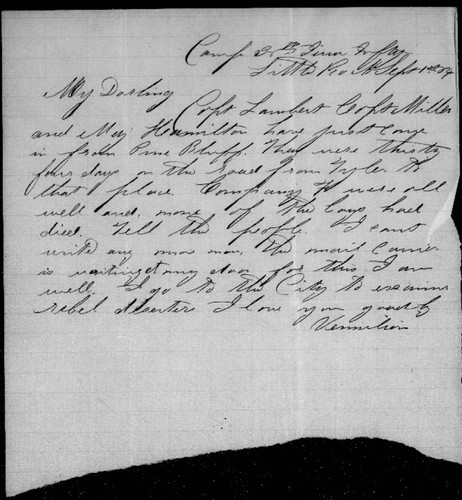 Camp 36th Iowa Infty
Little Rock Sept 1st 64
My Darling
Capt Lambert Capt Miller
and Maj Hamilton have just come
in from Pine Bluff. They were thirty
four days on the road from Tyler to
that place. Company F were all
well and none of the boys had
died. Tell the people. I cant
write any more now, the mail carrier
is waiting at my door for this. I am
well. I go to the City to examine
rebel deserters I love you good by
Vermilion